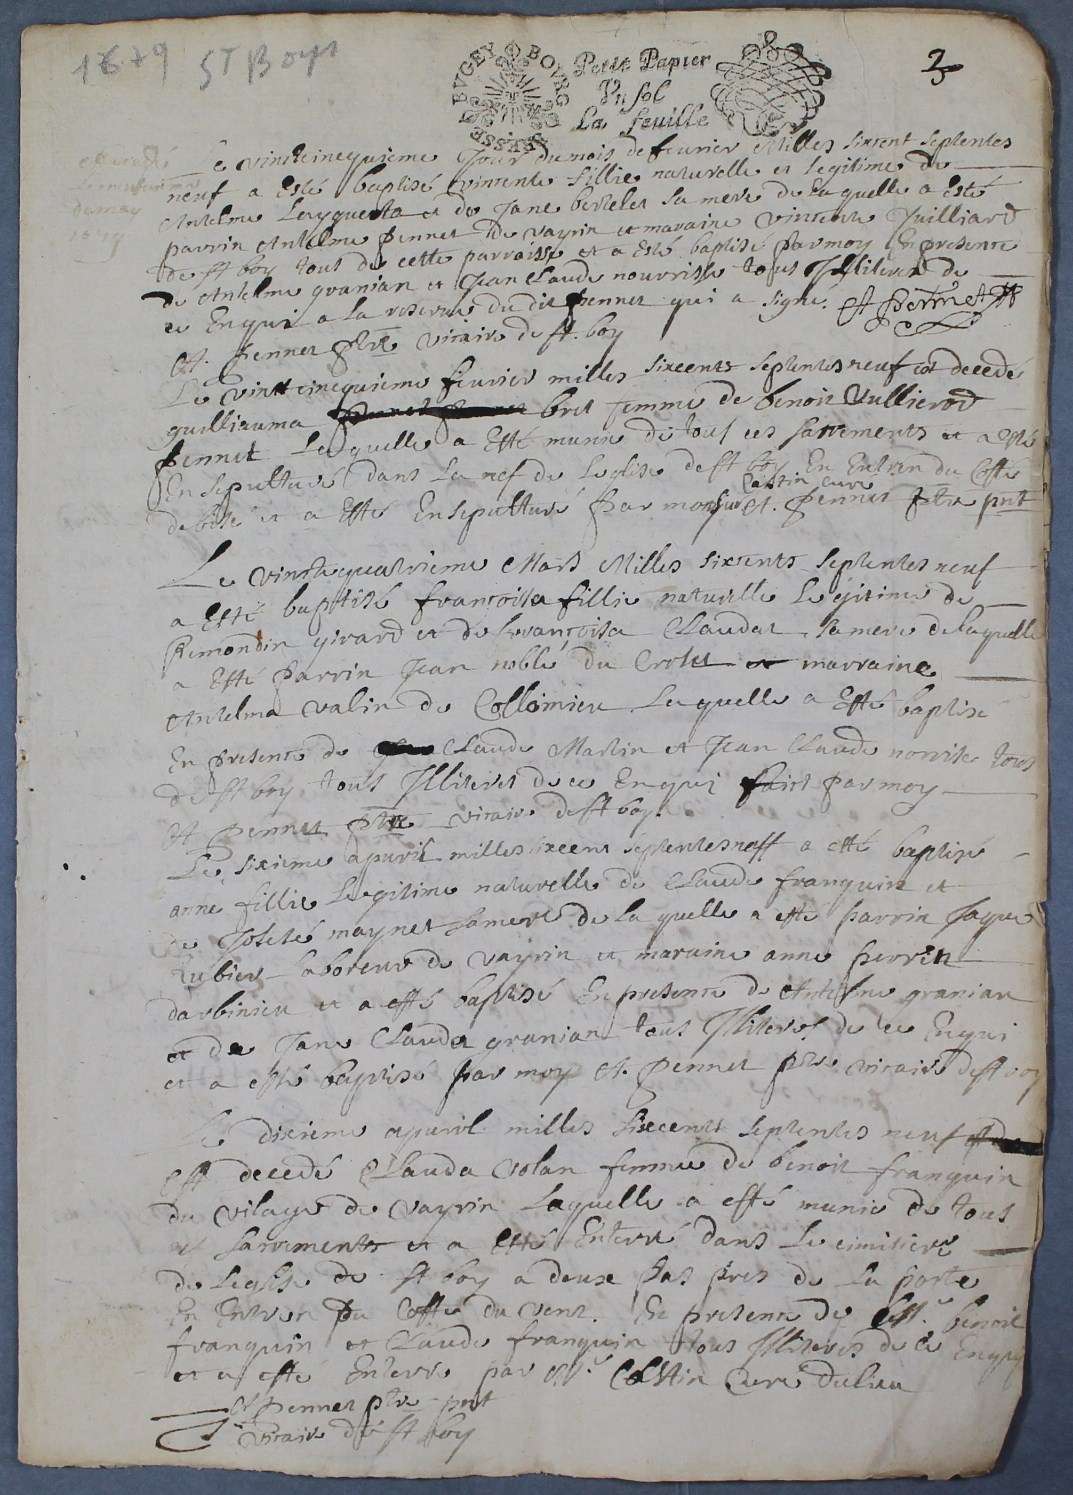 1679 St Boys
BVGEY BOVRG
Petit Papier
Un sol
La feuille
3
Le vintcinequieme Jour du mois de feurier Milles sixcent septentes
neuf a Esté baptisé vincente fillie naturelle et legitime de
Antelme et de Jane bertelet sa mere de laquelle a esté
parrin Antelme pennet de vayrin et maraine vincente Juilliard
de st boy tous de cette parroisse et a esté baptisé par moy En presence
de Antelme granian et Jean Claude nourrisse tous Illiteres de
ce Enqui a la reserve du dit pennet qui a signe. A pennet
A. pennet ptre vicaire de st. boy
Le vintt cinequieme feurier milles sixcents septentes neuf est decede
guilliauma bret femme de benoit Vullierod
pennet Laquelle a Esté munie de tous ces sacrements et a esté
Ensepulturé dans la nef de Leglise de st boy En Entren du Costé
de bise et a Esté Ensepulturé par monsieur Costin cure A. pennet ptre pnt
Le vintt quatrieme Mars Milles sixcents septentes neuf
a Esté baptisé françoisa fillie naturelle Legitime de
Remondin girard et de françoisa Claudat sa mere de laquelle
a Esté Parrin Jean noble du Crolet et marraine
Antelma valin de Collomieu Laquelle a Esté baptisé
En presence de Claude Martin et Jean Claude norrise tous
de st boy tous Illiteres de ce Enqui faict par moy
A pennet ptre vicaire de st boy.
Le sixieme apuril milles sixcent septentes neff a esté baptisé
anne fillie Legitime naturelle de Claude franquin et
de maynet sa mere de la quelle a este parrin Jaque
Rubier Laboreur de vayrin et maraine anne perrin
darbinieu et a esté baptisé En presence de Antelme granian
et de Jane Clauda granian tous Illiteres de ce Enqui
et a esté baptisé par moy A. pennet ptre vicaire de st boy
Le dixieme apuril milles sixcents septentes neuf
est decedé Clauda volan femme de benoit franquin
du vilage de vayrin Laquelle a esté munie de tous
ses sacrements et a Esté Enterré dans Le cimitiere
de Leglise de st boy a deux pas pres de la porte
En Entren du Costé du vent. En presence de benoit
franquin et Claude franquin tous Illiteres de ce Enqui
et a esté Enterre par Mr. Costin Curé du lieu
A pennet ptre pnt
vicaire de st boy